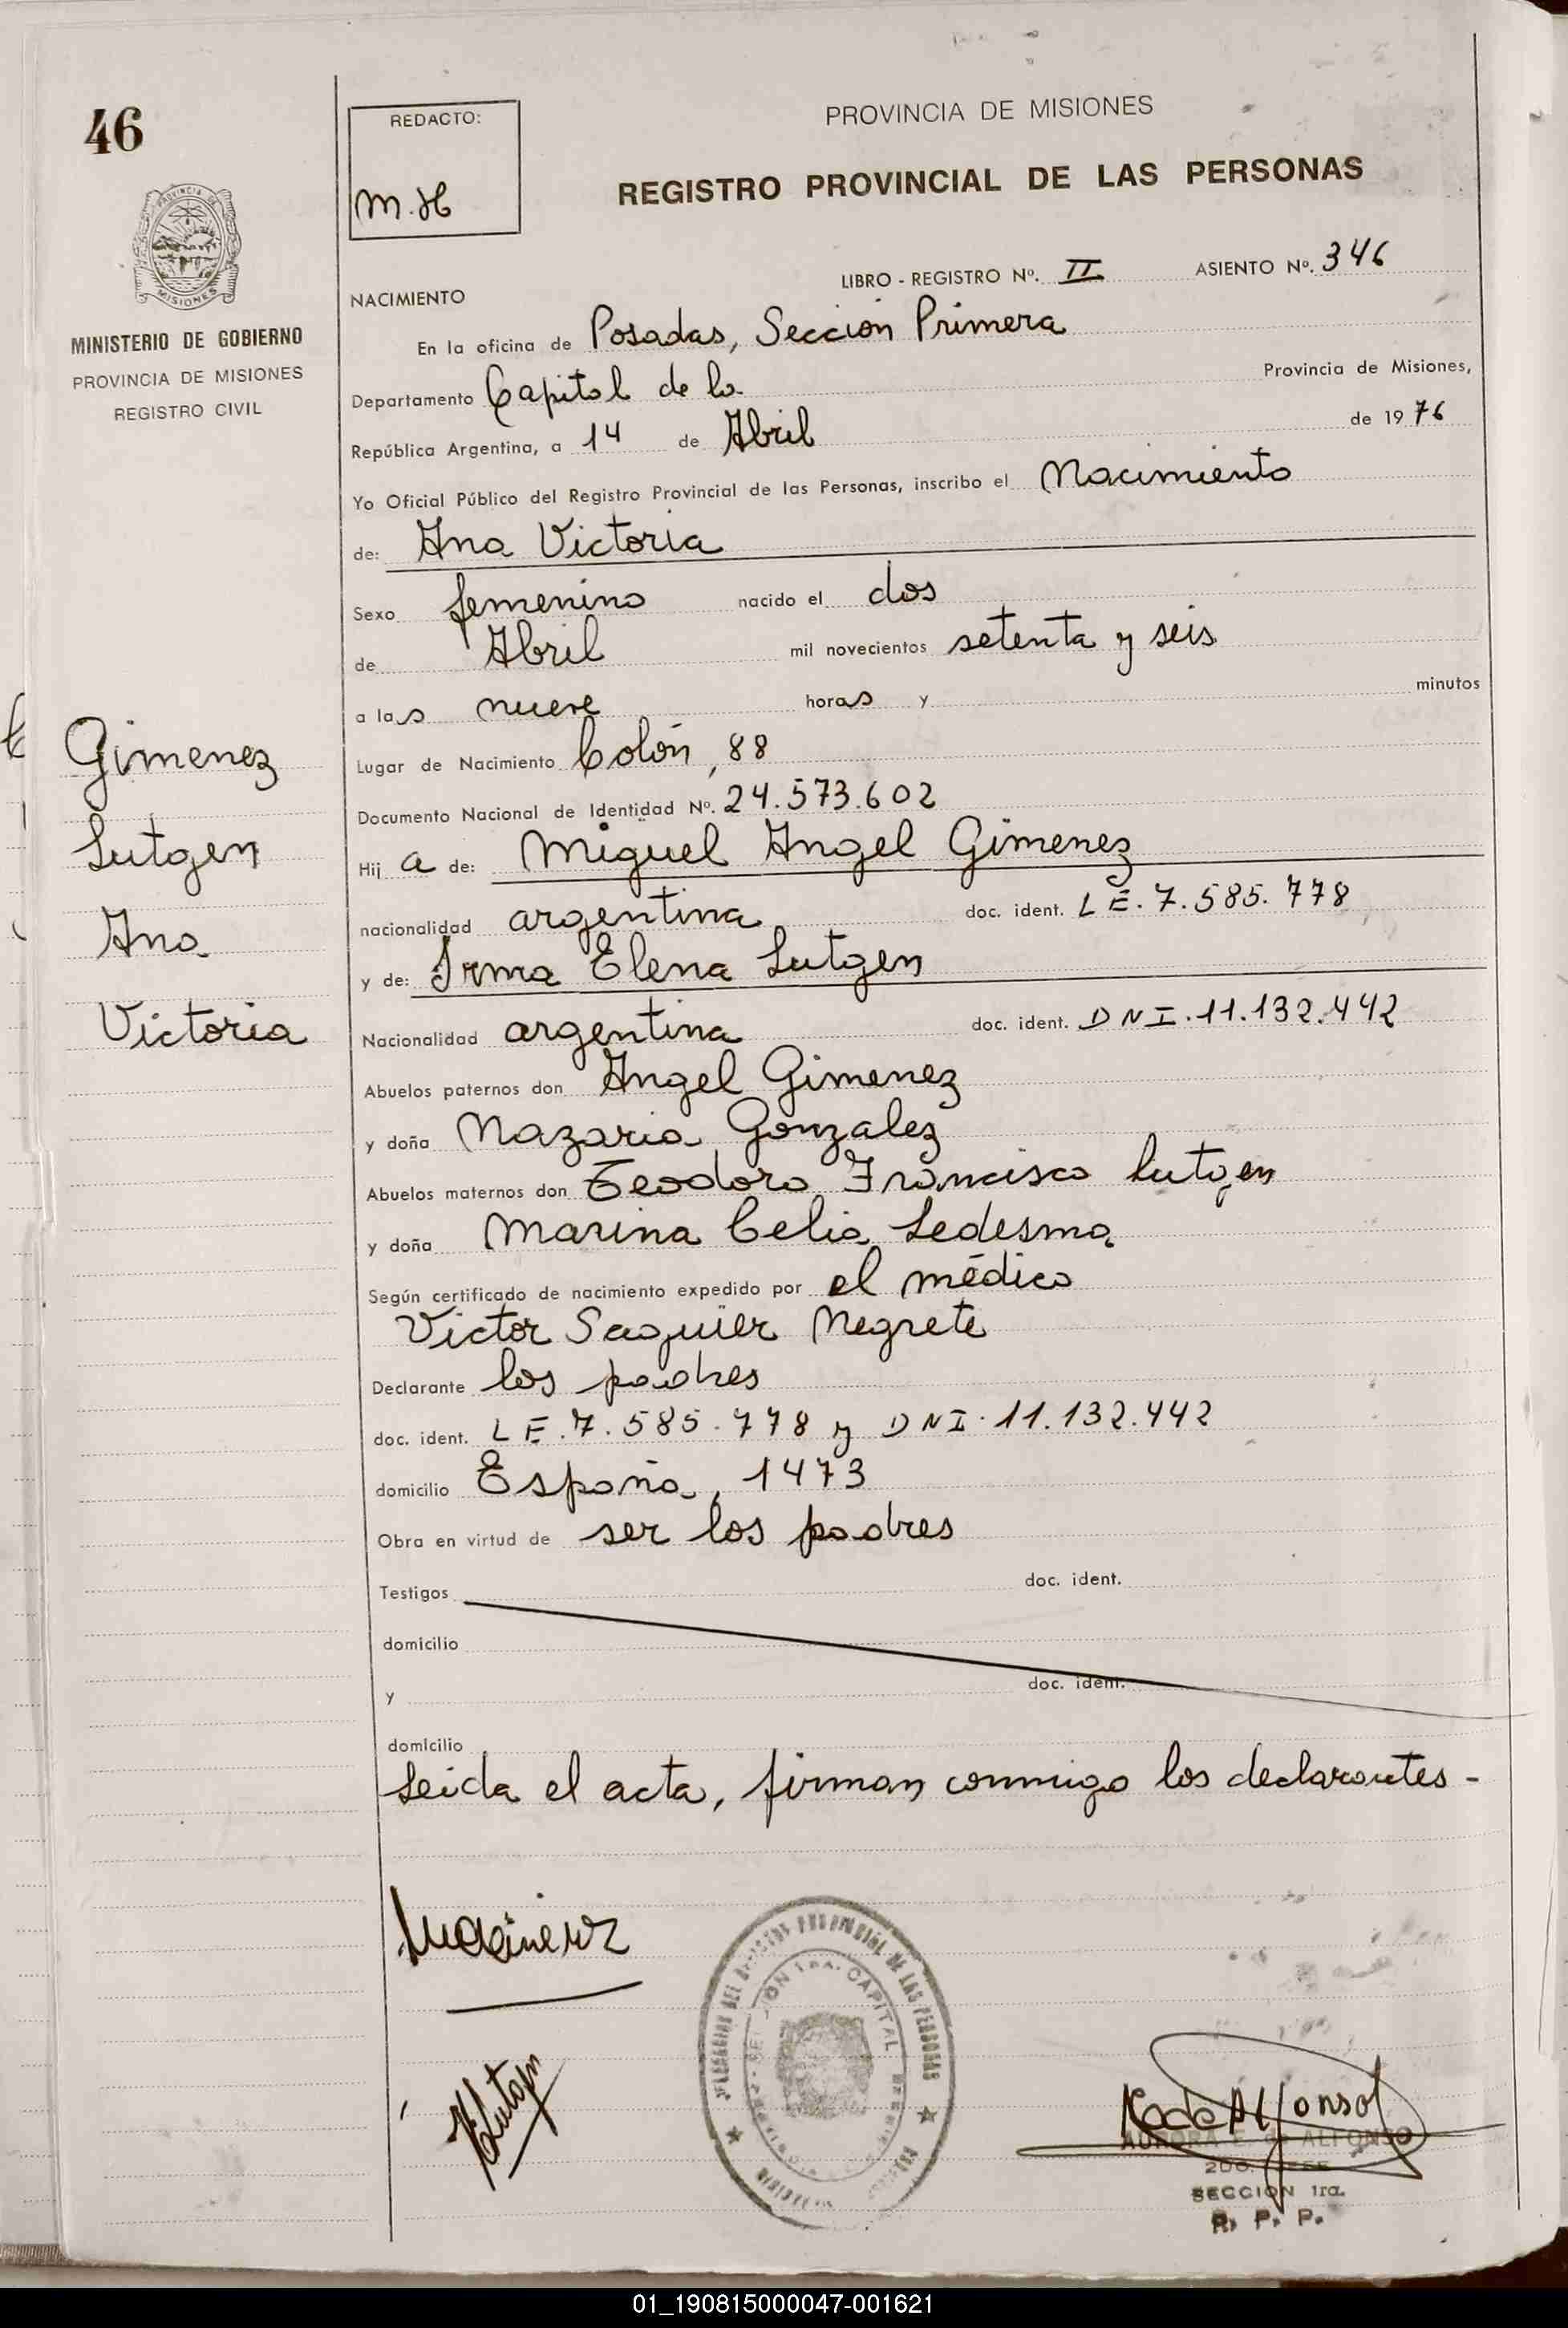 46
REDACTO:
M.H
PROVINCIA DE MISIONES
REGISTRO PROVINCIAL DE LAS PERSONAS
PROVINCIA DE
MISIONES
MINISTERIO DE GOBIERNO
PROVINCIA DE MISIONES
REGISTRO CIVIL
LIBRO - REGISTRO Nº. II ASIENTO Nº. 346
NACIMIENTO
En la oficina de Posadas, Sección Primera
Departamento Capital de la Provincia de Misiones,
República Argentina, a 14 de Abril de 1976
Yo Oficial Público del Registro Provincial de las Personas, inscribo el Nacimiento
de: Ana Victoria
Sexo femenino nacido el dos
de Abril mil novecientos setenta y seis
a las nueve horas y minutos
Lugar de Nacimiento Colón, 88
Documento Nacional de Identidad Nº. 24.573.602
Hija de: Miguel Angel Gimenez
nacionalidad argentina doc. ident. L E. 7.585.778
y de: Irma Elena Lutgen
Nacionalidad argentina doc. ident. DNI. 11.132.442
Abuelos paternos don Angel Gimenez
y doña Nazaria Gonzalez
Abuelos maternos don Teodoro Francisco Lutgen
y doña Marina Celia Ledesma
Según certificado de nacimiento expedido por el médico
Victor Saguier Negrete
Declarante los padres
doc. ident. L E. 7.585.778 y DNI. 11.132.442
domicilio España, 1473
Obra en virtud de ser los padres
Testigos doc. ident.
domicilio
y doc. ident.
domicilio
Leída el acta, firman conmigo los declarantes -
Gimenez
Lutgen
Ana
Victoria
DEL REGISTRO PROVINCIAL DE LAS PERSONAS
SECCION 1ra. CAPITAL
de Alfonso
AURORA E. de ALFONSO
2DO. JEFE
SECCION 1ra.
R. P. P.
01_190815000047-001621